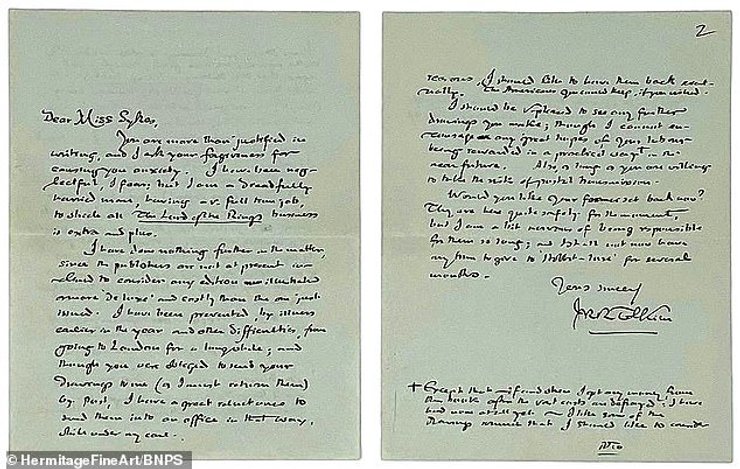 Dear Miss Sykes,
You are more than justified in
writing, and I ask your forgiveness for
causing you anxiety. I have been neg-
lectful, I fear; but I am a dreadfully
harried man, having a v. full time job,
to which all The Lord of the Rings business
is extra and plus.
I have done nothing further in the matter,
since the publishers are not at present in-
clined to consider any edition illustrated
or more 'de luxe' and costly than the one just
issued. I have been prevented, by illness
earlier in the year and other difficulties, from
going to London for a long while; and
though you were obliged to send your
drawings to me (as I must return them)
by post, I have a great reluctance to
send them into an office in that way,
while under my care.
2
reasons, I should like to have them back eventu-
ally. The Americans you could keep, if you wished.
I should be v. pleased to see any further
drawings you make; though I cannot en-
courage any great hopes of your labour
being rewarded in a practical way† in the
near future. Also, as long as you are willing
to take the risk of postal transmission.
Would you like your former set back now?
They are here quite safely for the moment,
but I am a bit nervous of being responsible
for them so long; and I shall not now have
any time to give to 'Hobbit-lore' for several
months.
Yours sincerely
JRR Tolkien
† Except that – if and when I get any money from
this book after the vast costs are defrayed: I have
had none at all yet – I like some of the
drawings so much that I should like to consider
PTO
© HermitageFineArt/BNPS